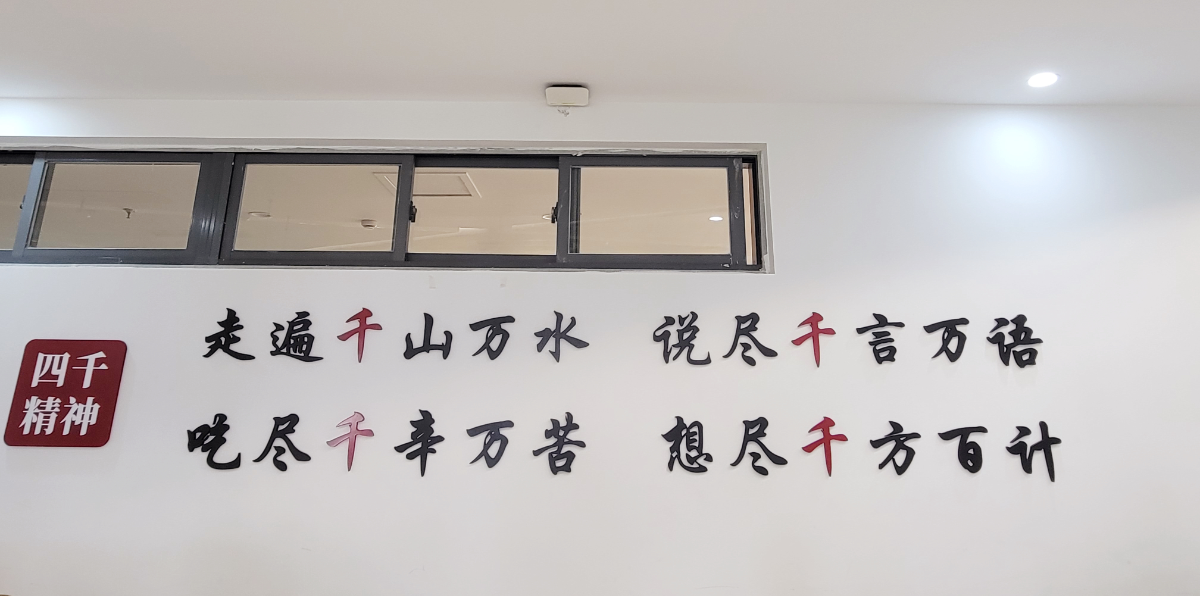 四千
精神
走遍千山万水 说尽千言万语
吃尽千辛万苦 想尽千方百计